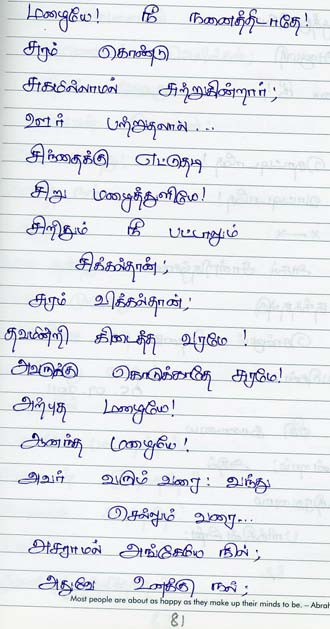 மழையே! நீ நனைத்திடாதே!
சுரம் கொண்டு
சுகமில்லாமல் சுற்றுகின்றார்;
ஊர் பற்றுதலால்...
சிந்தைக்கு எட்டுதடி
சிறு மழைத்துளியே!
சிறிதும் நீ பட்டாலும்
சிக்கல்தான்;
சுரம் விக்கல்தான்;
தவமின்றி கிடைத்த வரமே!
அவருக்கு கொடுக்காதே சுரமே!
அற்புத மழையே!
ஆனந்த மழையே!
அவர் வரும் வரை: வந்து
செல்லும் வரை...
அசராமல் அங்கேயே நில்;
அதுவே உனக்கு நல்;
Most people are about as happy as they make up their minds to be. – Abrah
81